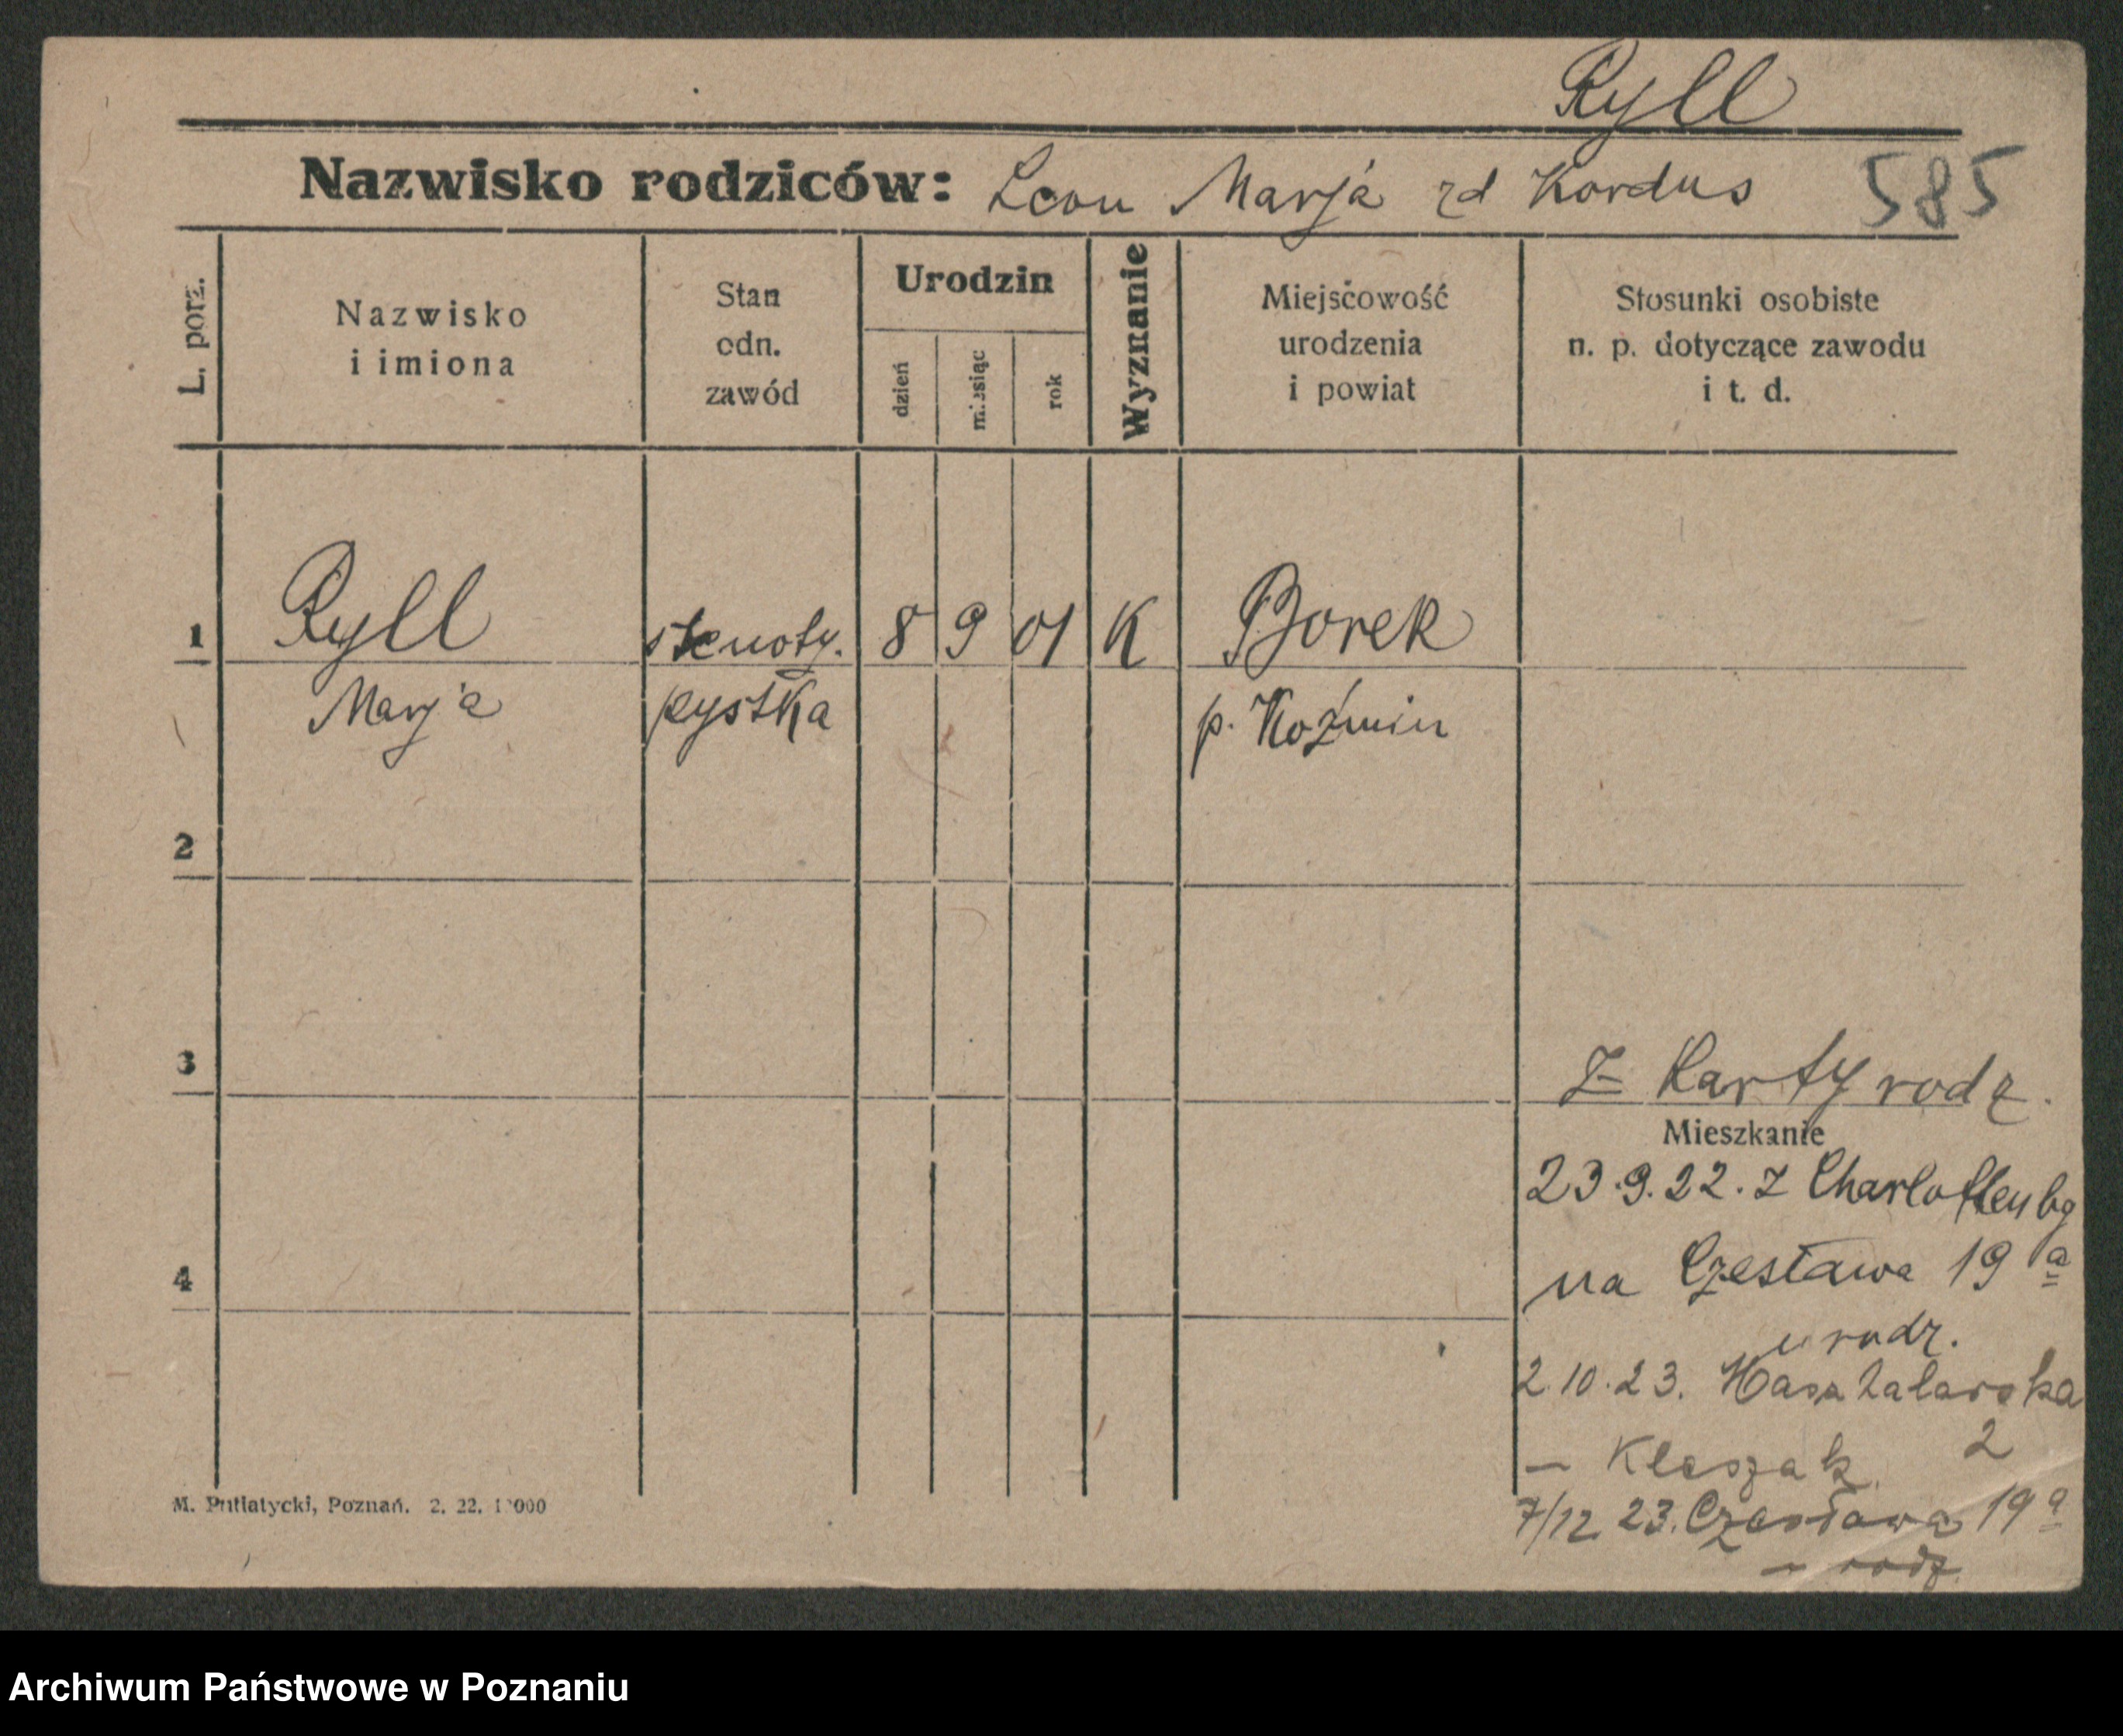 Ryll
Nazwisko rodziców: Leon Marja zd Kordus 585
L. porz.
Nazwisko
i imiona
Stan
odn.
zawód
Urodzin
dzień
miesiąc
rok
Wyznanie
Miejscowość
urodzenia
i powiat
Stosunki osobiste
n. p. dotyczące zawodu
i t. d.
1 Ryll stenoty. 8 9 01 K Borek
Marja pystka p. Koźmin
2
3
Z Karty rodz.
Mieszkanie
23.9.22. z Charlottenbg
na Czesława 19 a
4
u rodz.
2.10.23. Masztalarska
2
— Kleszak
7/12 23. Czesława 19 a
— rodz.
M. Putiatycki, Poznań. 2. 22. 1 000
Archiwum Państwowe w Poznaniu